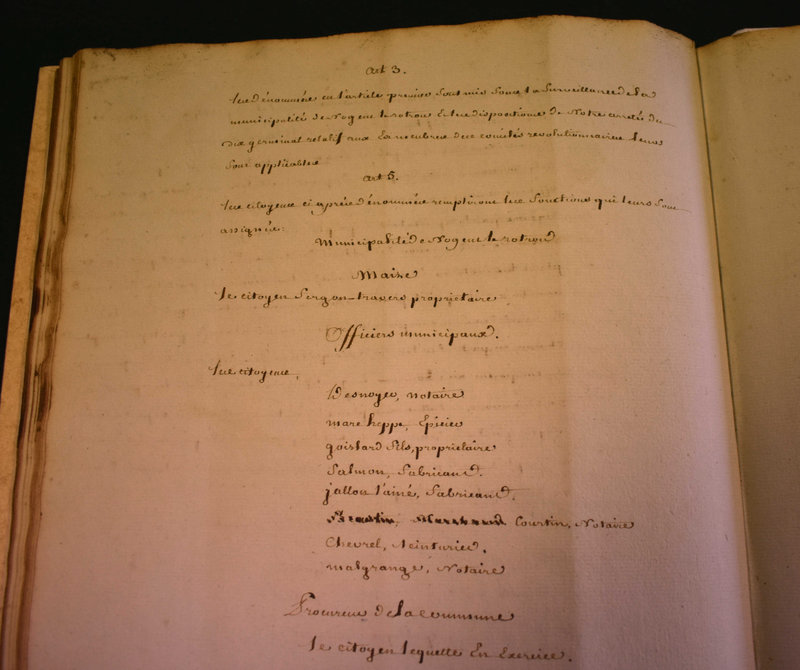 art 3.
Les dénommés en l'article premier sont mis sous la Surveillance de la
municipalité de Nogent le rotrou Et les dispositions de Notre arrêté du
dix germinal relatif aux Ex membres des comités revolutionnaires leurs
sont applicables
art 5.
Les citoyens ci après dénommés rempliront les fonctions qui leurs sont
assignées:
Municipalité de Nogent le rotrou
Maire
le citoyen travers proprietaire
Officiers municipaux.
Les citoyens
Desnoyers, notaire
marc Epicier
fils, proprietaire
Salmon, fabricant.
jallon l'ainé, fabricant.
Courtin, Notaire
Chevrel, teinturier.
malgrange, Notaire
Procureur de la commune
le citoyen lequette En Exercice.